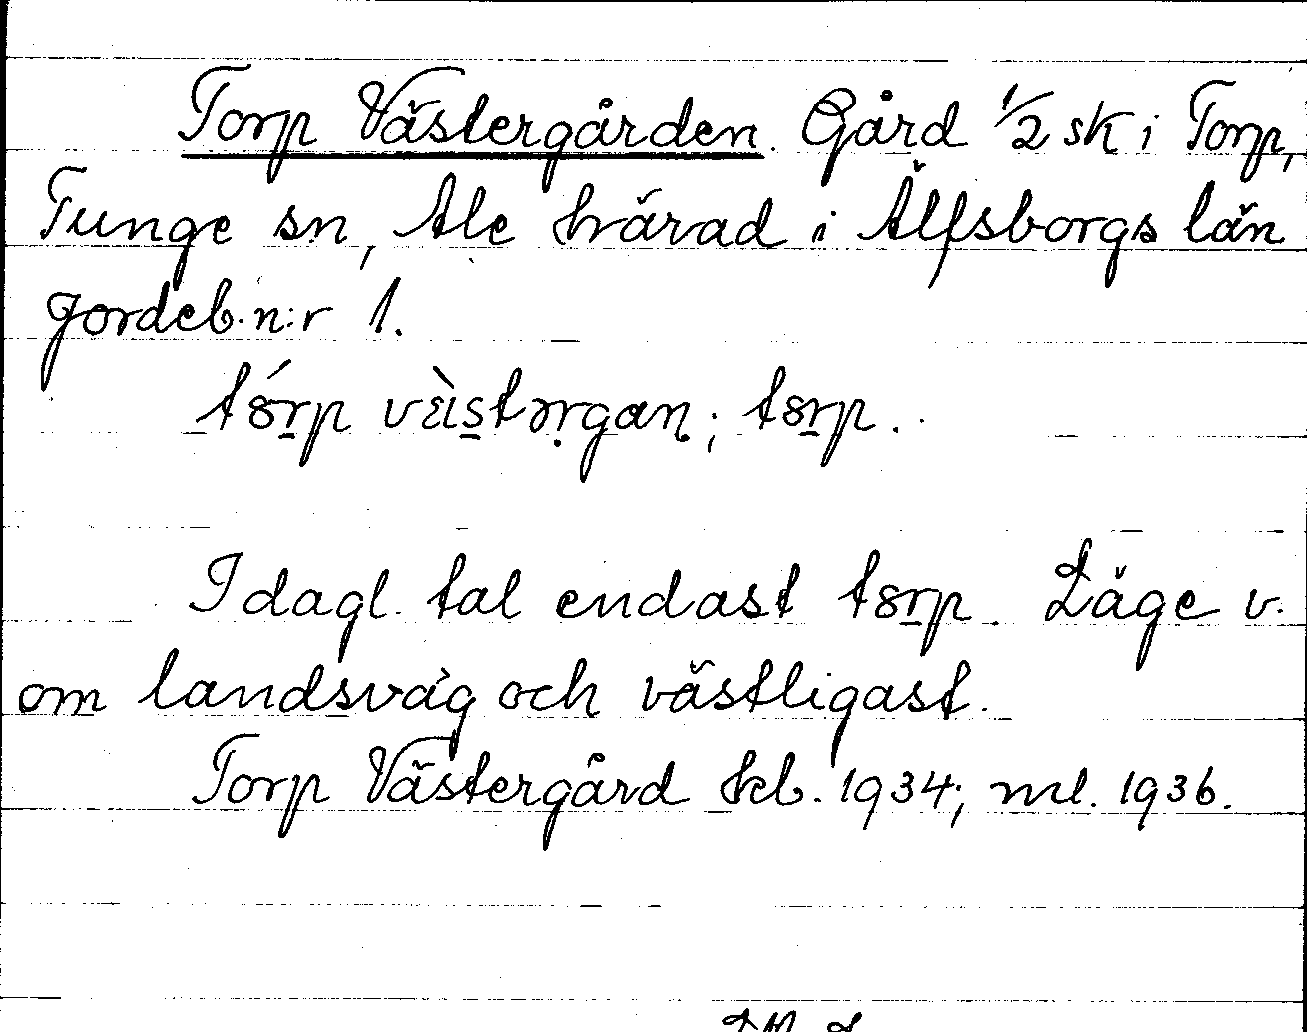 Torp Västergården. Gård 1/2 sk i Torp,
Tunge sn, Ale härad i Älfsborgs län
Jordeb. n:r 1.
tȣ́rp vɛ̀istərgan; tȣrp.
I dagl. tal endast tȣrp. Läge v.
om landsväg och västligast.
Torp Västergård kb. 1934; ml. 1936.